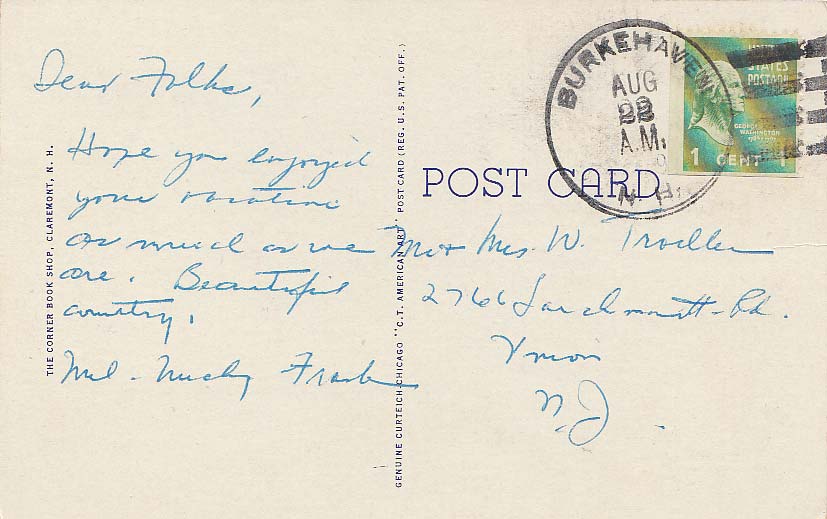 Dear Folks,
Hope you enjoyed
your vacation
as much as we
are. Beautiful
country.
Mel - Frank
THE CORNER BOOK SHOP, CLAREMONT, N. H.
GENUINE CURTEICH-CHICAGO "C.T. AMERICAN ART" POST CARD (REG. U.S. PAT. OFF.)
POST CARD
BURKEHAVEN
AUG
22
A.M.
N.H.
UNITED
STATES
POSTAGE
GEORGE
WASHINGTON
1 CENT 1
Mr + Mrs. W. Troeller
2766 Larchmont Rd.
Union
N.J.